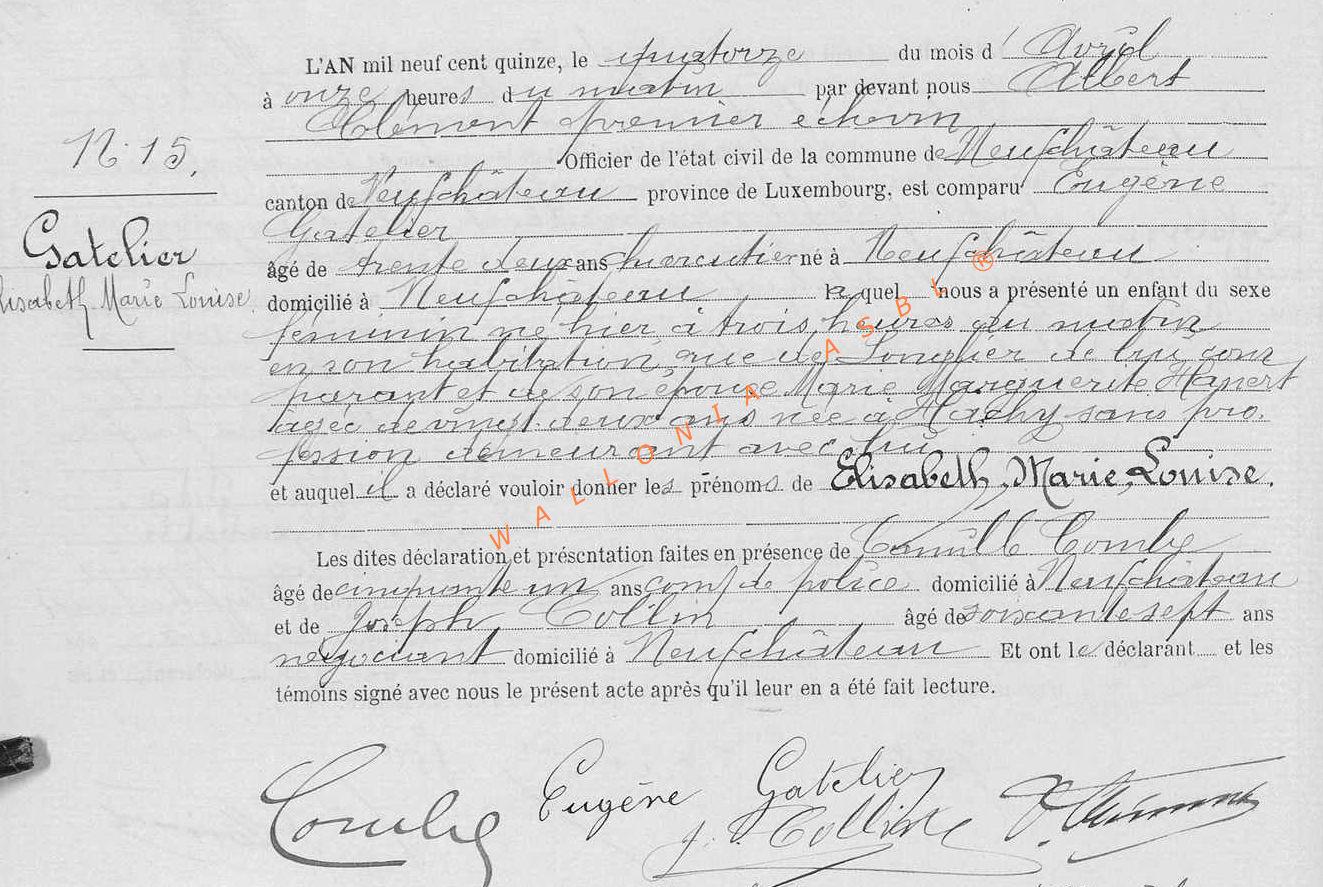 L'AN mil neuf cent quinze, le quatorze du mois d'Avril
à onze heures du matin par devant nous Albert
Clément premier échevin
Officier de l'état civil de la commune de Neufchâteau
N. 15.
canton de Neufchâteau province de Luxembourg, est comparu Eugène
Gatelier
Gatelier
âgé de trente deux ans né à Neufchâteau
Elisabeth Marie Louise
domicilié à Neufchâteau lequel nous a présenté un enfant du sexe
féminin né hier à trois heures du matin
en son habitation, rue de Longlier de lui, com
parant et de son épouse Marie Marguerite Hapert
agée de vingt deux ans née à Hachy sans pro.
fession demeurant avec lui
et auquel il a déclaré vouloir donner les prénoms de Elisabeth, Marie, Louise.
Les dites déclaration et présentation faites en présence de Camille Comby
âgé de cinquante un ans com. de police domicilié à Neufchâteau
et de Joseph Collin âgé de soixante sept ans
négociant domicilié à Neufchâteau Et ont le déclarant et les
témoins signé avec nous le présent acte après qu'il leur en a été fait lecture.
Eugène Gatelier
J. Collin
WALLONIA ASBL ®